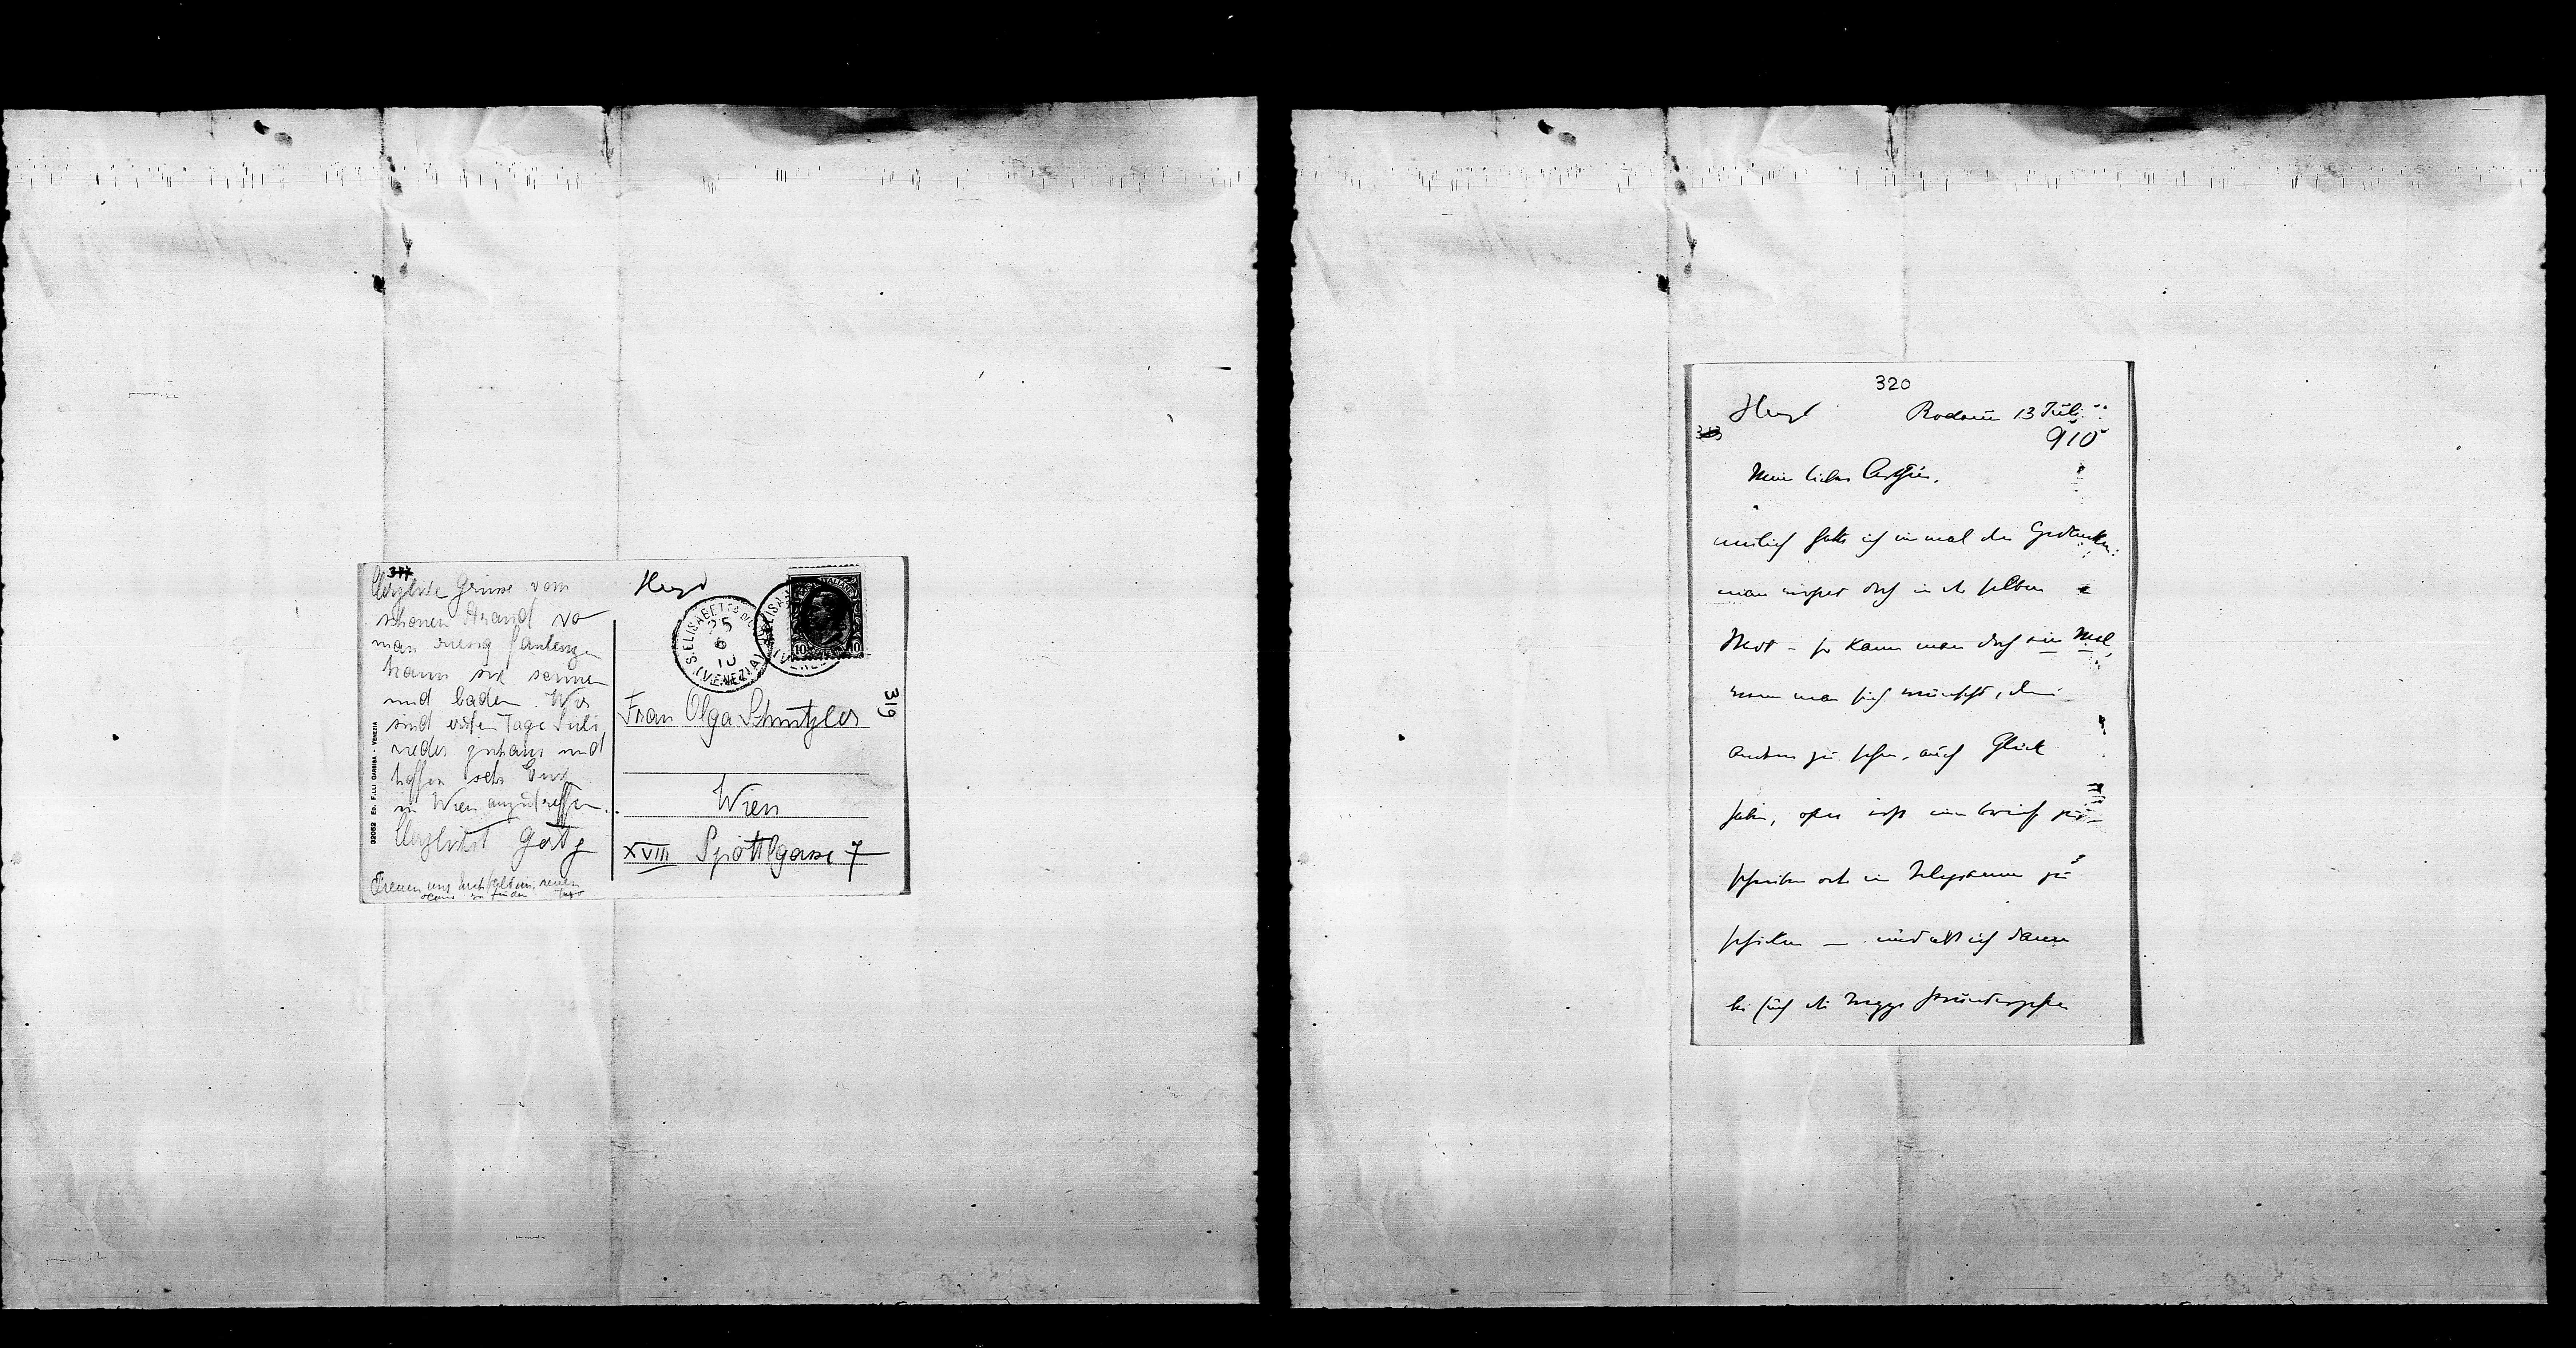 317
Herzliche Grüsse vom
schönen Strand wo
man wenig faulenzen
kann sich sonnen
und baden. Wir
sind erste Tage Juli
wieder zuhaus und
hoffen sehr Euch
in Wien anzutreffen.
Herzlichst Gerty
Freuen uns Euch bald im neuen
zu finden
32052 ED. F.LLI GARBISA - VENEZIA
Hugo
S. ELISABETTA
25
6
10
(VENEZIA)
10 10
319
Frau Olga Schnitzler
Wien
XVIII Spöttlgasse 7
320
Hugo Rodaun 13 Juli
910
Mein lieber Arthur,
neulich hatte ich einmal den Gedanken:
man wohnt doch in derselben
Stadt – so kann man doch ein Mal,
wenn man sich wünscht, den
andern zu sehen, auch Glück
haben, ohne erst einen Brief zu
schreiben oder ein Telegramm zu
schicken — und als ich dann
die Treppe hinunterging